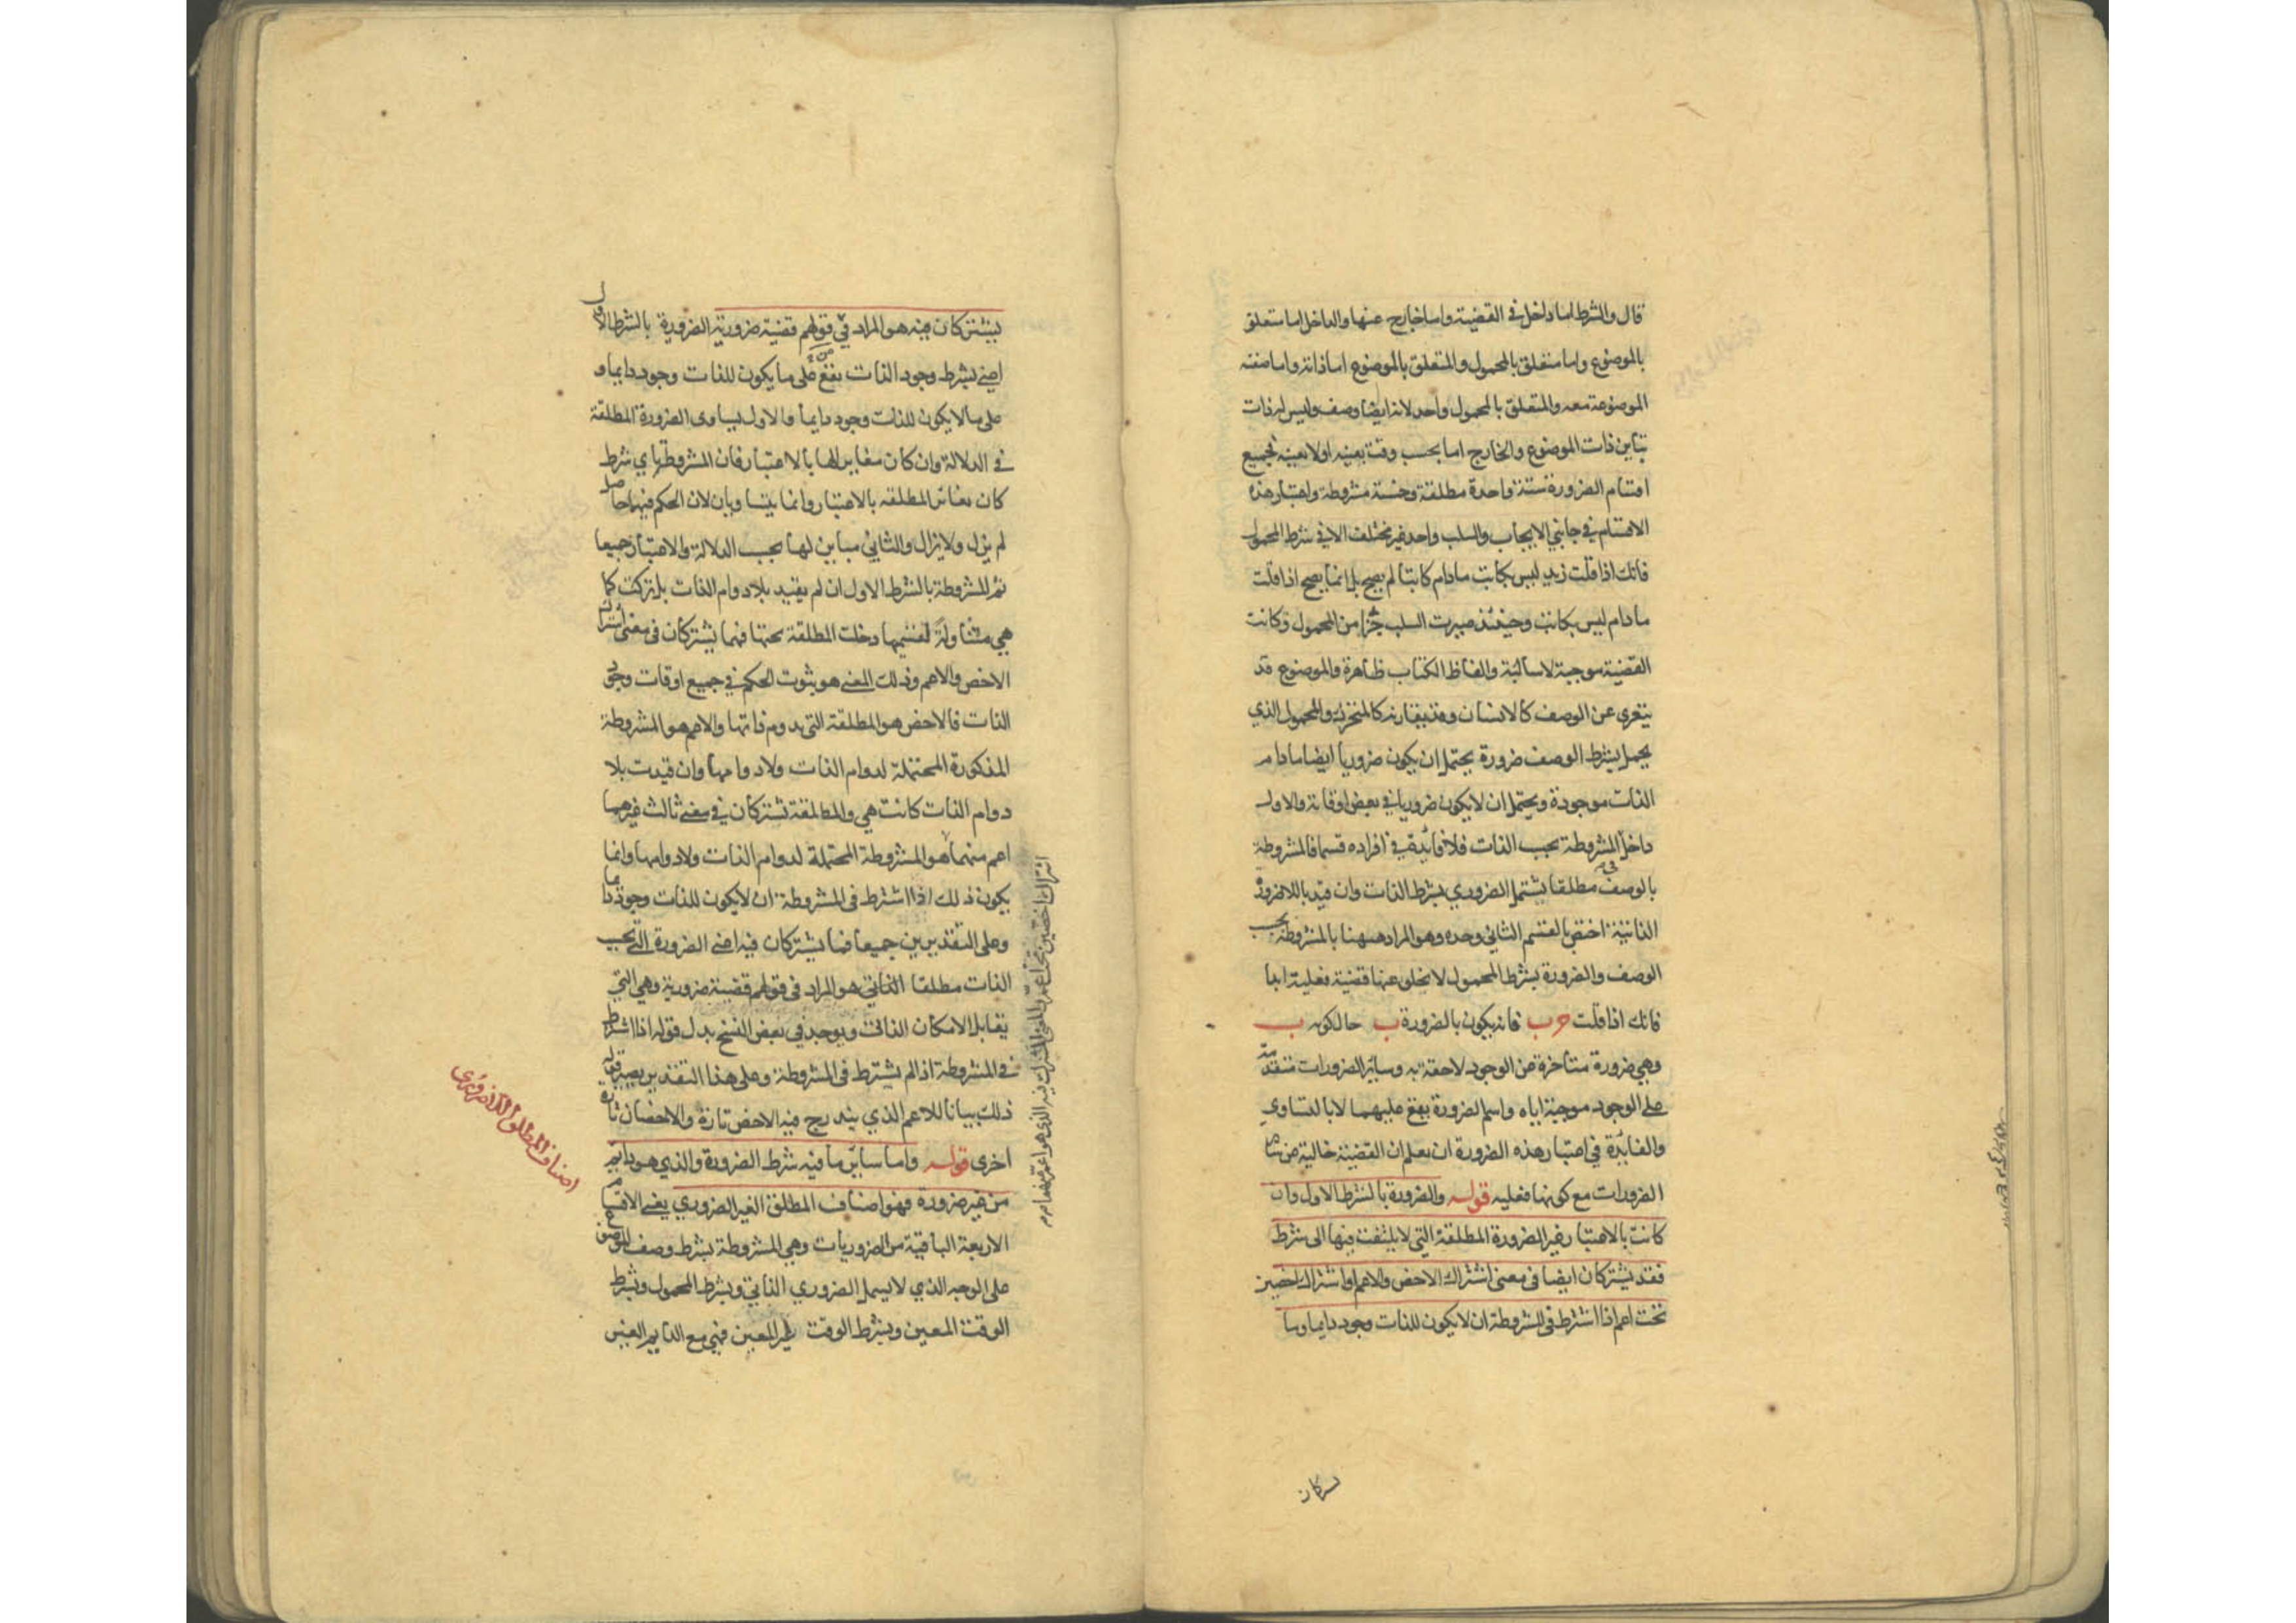 قال والشرط اما داخل في القضية واما خارج عنها والداخل اما متعلق
بالموضوع واما متعلق بالمحمول والمتعلق بالموضوع اما ذاته واما صفته
الموضوعة معه والمتعلق بالمحمول واحد لانه ايضا وصف وليس له ذات
تباين ذات الموضوع والخارج اما بحسب وقت بعينه او لا بعينه فجميع
اقسام الضرورة ستة واحدة مطلقة وخمسة مشروطة واعتبار هذه
الاقسام في جانبي الايجاب والسلب واحد غير مختلف الا في شرط المحمول
فانك اذا قلت زيد ليس بكاتب مادام كاتبا لم يصح بل انما يصح اذا قلت
مادام ليس بكاتب وحينئذ صيرت السلب جزأ من المحمول وكانت
القضية موجبة لا سالبة والفاظ الكتاب ظاهرة والموضوع قد
يتعرى عن الوصف كالانسان وقد يقارنه كالمتحرك والمحمول الذي
يحمل بشرط الوصف ضرورة يحتمل ان يكون ضروريا ايضا مادام
الذات موجودة ويحتمل ان لا يكون ضروريا في بعض اوقاته والاول
داخل المشروطة بحسب الذات فلا فائدة في افراده قسما فالمشروطة
بالوصف مطلقا يشتمل الضروري بشرط الذات وان قيد باللاضرورة
الذاتية اختص بالقسم الثاني وحده وهو المراد ههنا بالمشروطة بحسب
الوصف والضرورة بشرط المحمول لا يخلو عنها قضية فعلية ابدا
فانك اذا قلت ج ب فانه يكون بالضرورة ب حال كونه ب
وهي ضرورة متاخرة عن الوجود لاحقة به وسائر الضرورات متقدمة
على الوجود موجبة اياه واسم الضرورة يقع عليهما لا بالتساوي
والفائدة في اعتبار هذه الضرورة ان يعلم ان القضية خالية عن سائر
الضرورات مع كونها فعليه قوله والضرورة بالشرط الاول وان
كانت بالاعتبار غير الضرورة المطلقة التي لا يلتفت فيها الى شرط
فقد يشتركان ايضا في معنى اشتراك الاخص والاعم او اشتراك اخصين
تحت اعم اذا اشترط في المشروطة ان لا يكون للذات وجود دايما وما
يشتركان
يشتركان فيه هو المراد في قولهم قضية ضرورية الضرورة بالشرط الاول
اعني بشرط وجود الذات يقع على ما يكون للذات وجود دايما و
على ما لا يكون للذات وجود دايما والاول يساوى الضرورة المطلقة
في الدلالة وان كان مغايرا لها بالاعتبار فان المشروطة باي شرط
كان يغاير المطلقه بالاعتبار وانما يتساويان لان الحكم فيهما حاصل
لم يزل ولا يزال والثاني مباين لها بحسب الدلالة والاعتبار جميعا
ثم المشروطة بالشرط الاول ان لم يقيد بلا دوام الذات بل تركت كما
هي متناولة لقسميها دخلت المطلقة تحتها فهما يشتركان في معنى اشتراك
الاخص والاعم وذلك المعنى هو ثبوت الحكم في جميع اوقات وجود
الذات فالاخص هو المطلقة التي يدوم ذاتها والاعم هو المشروطة
المذكورة المحتملة لدوام الذات ولا دوامها وان قيدت بلا
دوام الذات كانت هي والمطلقة تشتركان في معنى ثالث غيرهما
اعم منهما هو المشروطة المحتملة لدوام الذات ولا دوامها وانما
يكون ذلك اذا اشترط في المشروطة ان لا يكون للذات وجود دايما
وعلى التقديرين جميعا فما يشتركان فيه اعنى الضرورة التي بحسب
الذات مطلقا الذاتي هو المراد في قولهم قضية ضرورية وهي التي
يقابل الامكان الذاتي ويوجد في بعض النسخ بدل قوله اذا اشترط
في المشروطة اذا لم يشترط في المشروطة وعلى هذا التقدير يصير قوله
ذلك بيانا للاعم الذي يندرج فيه الاخص تارة والاخصان تارة
اخرى قوله واما سائر ما فيه شرط الضرورة والذي هو دايم
من غير ضرورة فهو اصناف المطلق الغير الضروري يعنى الاقسام
الاربعة الباقية من الضروريات وهي المشروطة بشرط وصف الموضوع
على الوجه الذي لا يشمل الضروري الذاتي وبشرط المحمول وبشرط
الوقت المعين وبشرط الوقت غير المعين فهي مع الدايم الغير
اصناف المطلق اللاضرورى